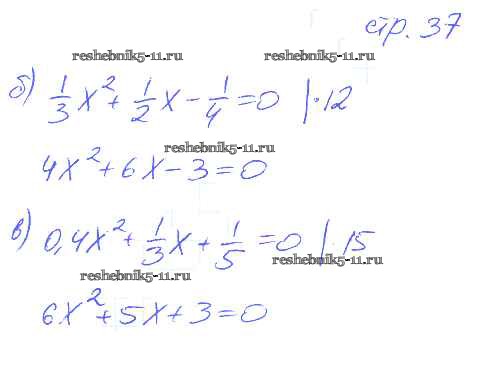 стр. 37
reshebnik5-11.ru reshebnik5-11.ru
б) 1/3 x² + 1/2 x - 1/4 = 0 | · 12
reshebnik5-11.ru
4x² + 6x - 3 = 0
в) 0,4x² + 1/3 x + 1/5 = 0 | · 15
reshebnik5-11.ru reshebnik5-11.ru
6x² + 5x + 3 = 0